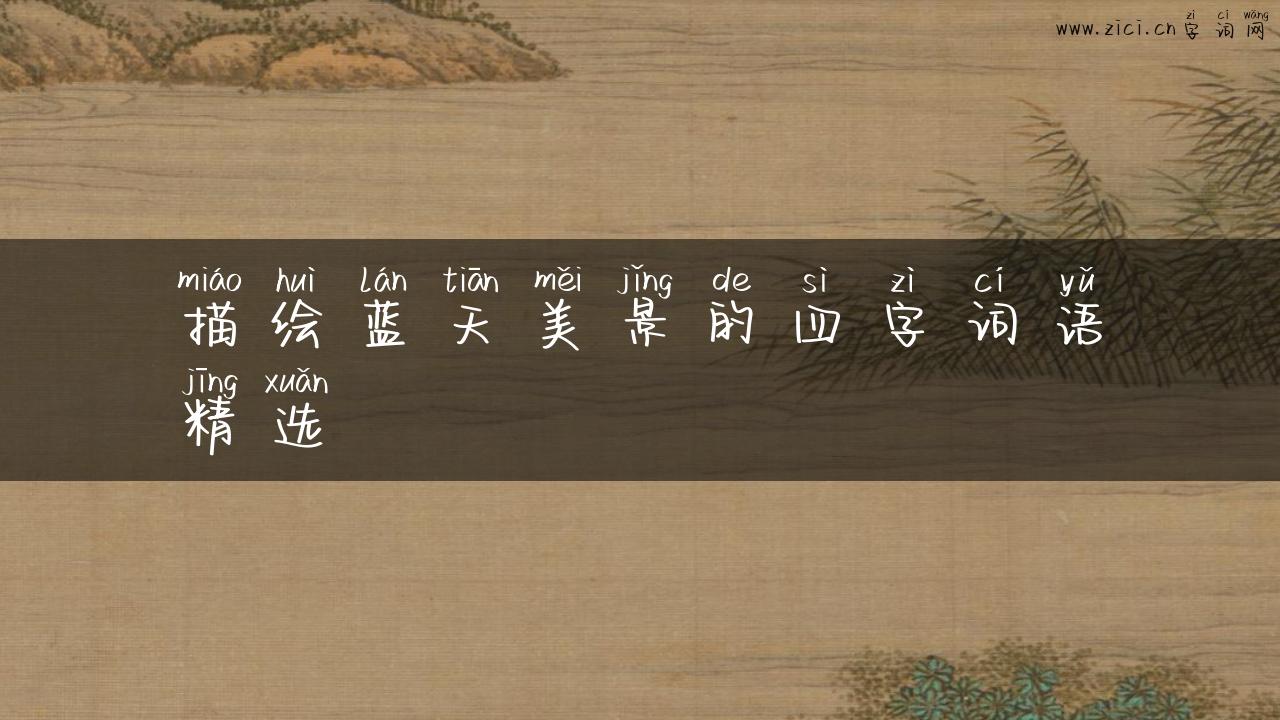 zì cí wǎng
www.zici.cn 字词网
miáo huì lán tiān měi jǐng de sì zì cí yǔ
描绘蓝天美景的四字词语
jīng xuǎn
精选